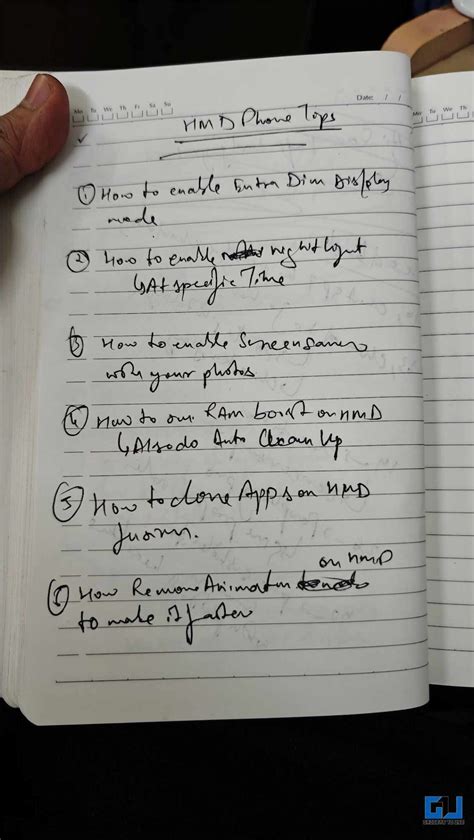 Mo Tu We Th Fr Sa Su
Date: / /
Mo Tu We Th
HMD Phone Tops
① How to enable Extra Dim Display
mode
② How to enable night light
↳ At specific Time
③ How to enable Screensaver
with your photos
④ How to our RAM boost on HMD
↳ Also do Auto Clean Up
⑤ How to clone Apps on HMD
fusion.
on HMD
⑥ How Remove Animation
to make it faster
GU